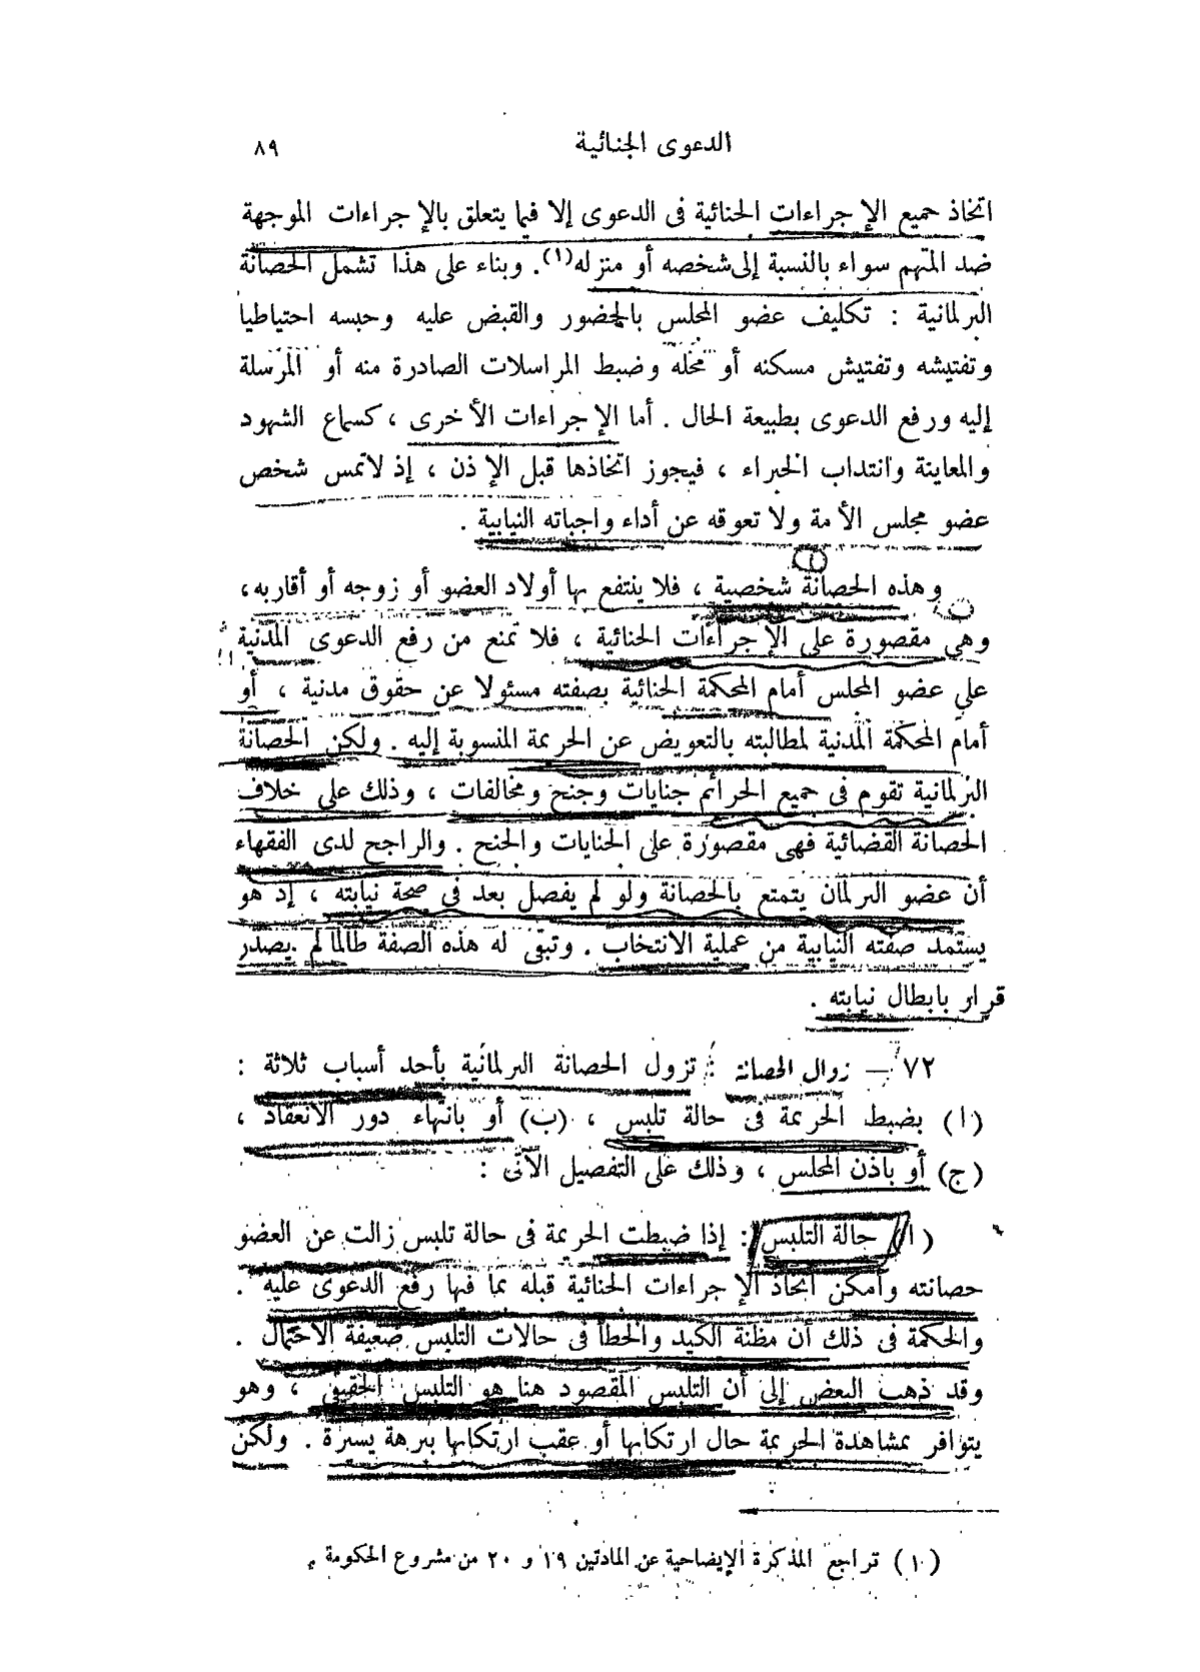 الدعوى الجنائية ٨٩
اتخاذ جميع الإجراءات الجنائية فى الدعوى إلا فيما يتعلق بالإجراءات الموجهة
ضد المتهم سواء بالنسبة إلى شخصه أو منزله(١). وبناء على هذا تشمل الحصانة
البرلمانية : تكليف عضو المجلس بالحضور والقبض عليه وحبسه احتياطيا
وتفتيشه وتفتيش مسكنه أو محله وضبط المراسلات الصادرة منه أو المرسلة
إليه ورفع الدعوى بطبيعة الحال . أما الإجراءات الأخرى ، كسماع الشهود
والمعاينة وانتداب الخبراء ، فيجوز اتخاذها قبل الإذن ، إذ لا تمس شخص
عضو مجلس الأمة ولا تعوقه عن أداء واجباته النيابية .
وهذه الحصانة شخصية ، فلا ينتفع بها أولاد العضو أو زوجه أو أقاربه،
وهى مقصورة على الإجراءات الجنائية ، فلا تمنع من رفع الدعوى المدنية
على عضو المجلس أمام المحكمة الجنائية بصفته مسئولا عن حقوق مدنية ، أو
أمام المحكمة المدنية لمطالبته بالتعويض عن الجريمة المنسوبة إليه . ولكن الحصانة
البرلمانية تقوم فى جميع الجرائم جنايات وجنح ومخالفات ، وذلك على خلاف
الحصانة القضائية فهى مقصورة على الجنايات والجنح . والراجح لدى الفقهاء
أن عضو البرلمان يتمتع بالحصانة ولو لم يفصل بعد فى صحة نيابته ، إذ هو
يستمد صفته النيابية من عملية الانتخاب . وتبقى له هذه الصفة طالما لم يصدر
قرار بابطال نيابته .
٧٢ – زوال الحصانة : تزول الحصانة البرلمانية بأحد أسباب ثلاثة :
(ا) بضبط الجريمة فى حالة تلبس ، (ب) أو بانتهاء دور الانعقاد ،
(ج) أو باذن المجلس ، وذلك على التفصيل الآتى :
(ا) حالة التلبس : إذا ضبطت الجريمة فى حالة تلبس زالت عن العضو
حصانته وأمكن اتخاذ الإجراءات الجنائية قبله بما فيها رفع الدعوى عليه .
والحكمة فى ذلك أن مظنة الكيد والخطأ فى حالات التلبس ضعيفة الاحتمال .
وقد ذهب البعض إلى أن التلبس المقصود هنا هو التلبس الحقيقى ، وهو
يتوافر بمشاهدة الجريمة حال ارتكابها أو عقب ارتكابها ببرهة يسيرة . ولكن
(١) تراجع المذكرة الإيضاحية عن المادتين ١٩ و ٢٠ من مشروع الحكومة .